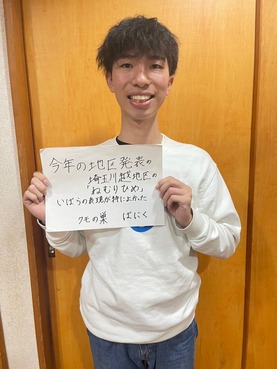 今年の地区発表の
埼玉川越地区の
「ねむりひめ」
いばらの表現が特によかった
クモの巣 ばにく